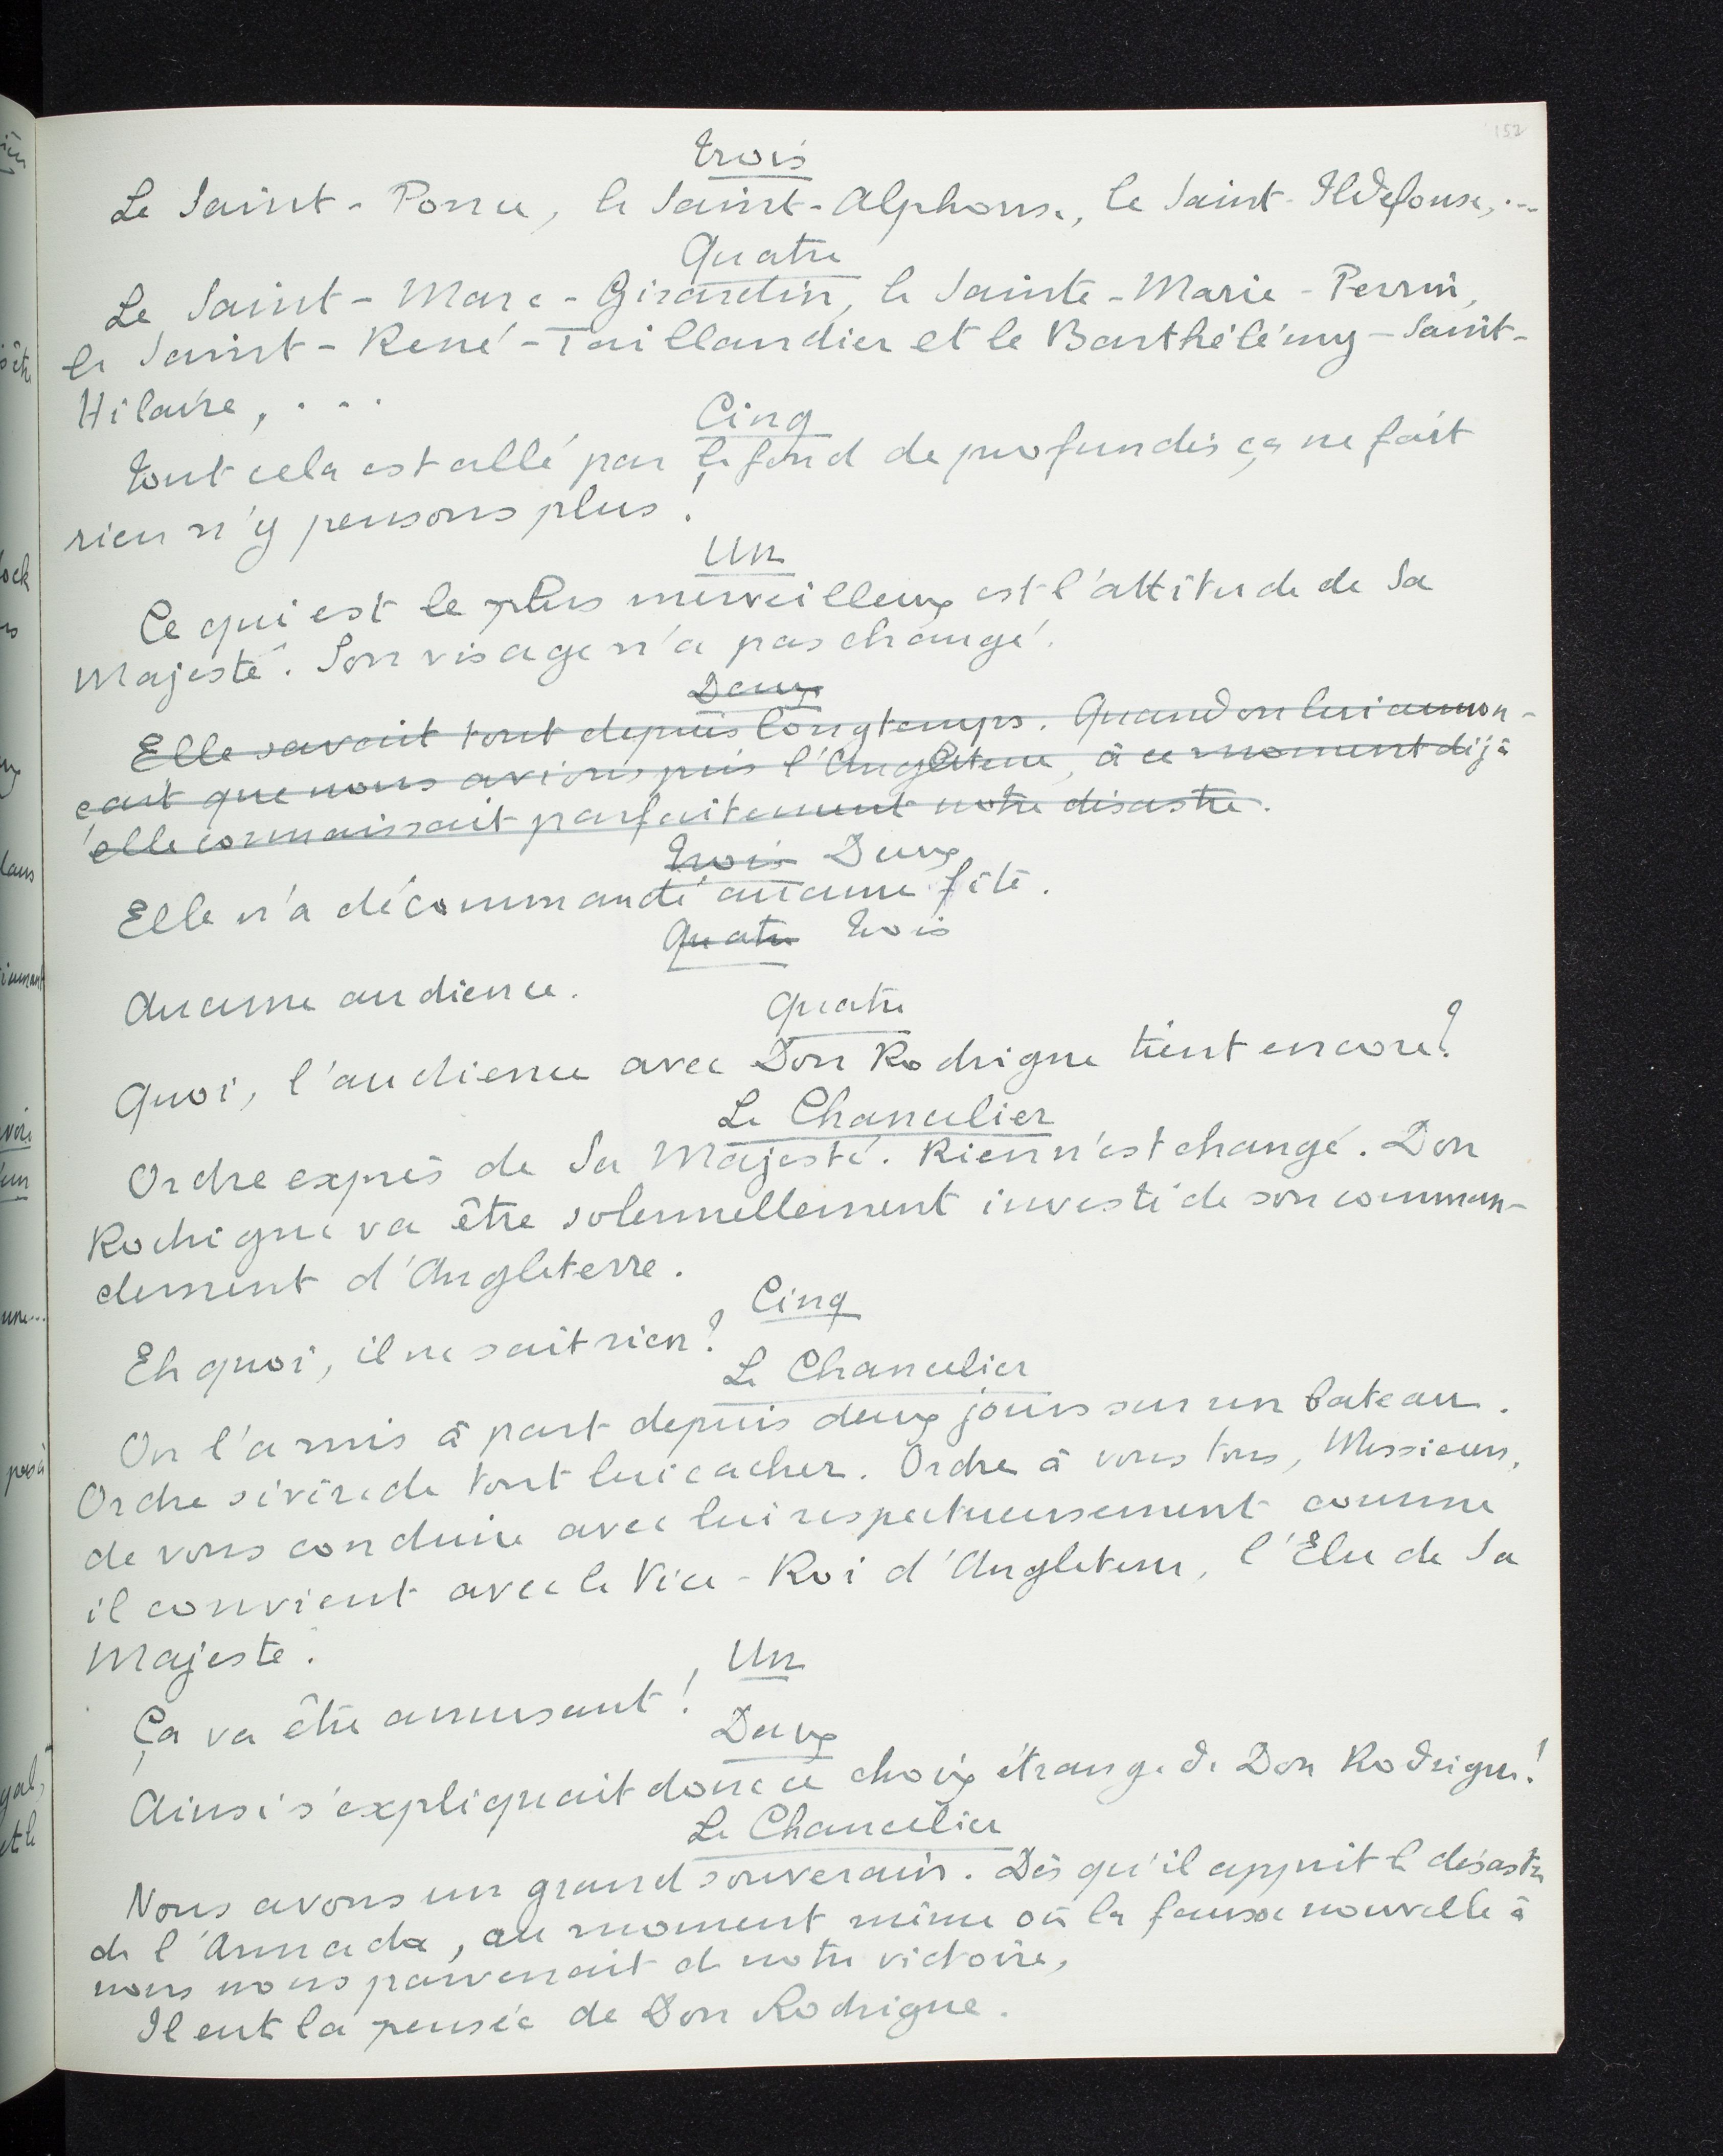 152
Trois
Le Saint-Ponce, le Saint-Alphonse, le Saint-Ildefonse,...
Quatre
Le Saint-Marc-Girardin, le Sainte-Marie-Perrin,
le Saint-René-Taillandier et le Barthélémy-Saint-
Hilaire, ...
Cinq
Tout cela est allé par le fond de profundis ça ne fait
rien n'y pensons plus !
Un
Ce qui est le plus merveilleux est l'attitude de Sa
Majesté. Son visage n'a pas changé.
Deux
Elle savait tout depuis longtemps. Quand on lui annon-
çait que nous avions pris l'Angleterre, à ce moment déjà
elle connaissait parfaitement notre désastre.
Trois Deux
Elle n'a décommandé aucune fête.
Quatre Trois
Aucune audience.
Quatre
Quoi, l'audience avec Don Rodrigue tient encore ?
Le Chancelier
Ordre exprès de Sa Majesté. Rien n'est changé. Don
Rodrigue va être solennellement investi de son comman-
dement d'Angleterre.
Cinq
Eh quoi, il ne sait rien ?
Le Chancelier
On l'a mis à part depuis deux jours sur un bateau.
Ordre sévère de tout lui cacher. Ordre à vous tous, Messieurs,
de vous conduire avec lui respectueusement comme
il convient avec le Vice-Roi d'Angleterre, l'Elu de Sa
Majesté.
Un
Ça va être amusant !
Deux
Ainsi s'expliquait donc ce choix étrange de Don Rodrigue !
Le Chancelier
Nous avons un grand souverain. Dès qu'il apprit le désastre
de l'Armada, au moment même où la fausse nouvelle à
nous nous parvenait de notre victoire,
Il eut la pensée de Don Rodrigue.